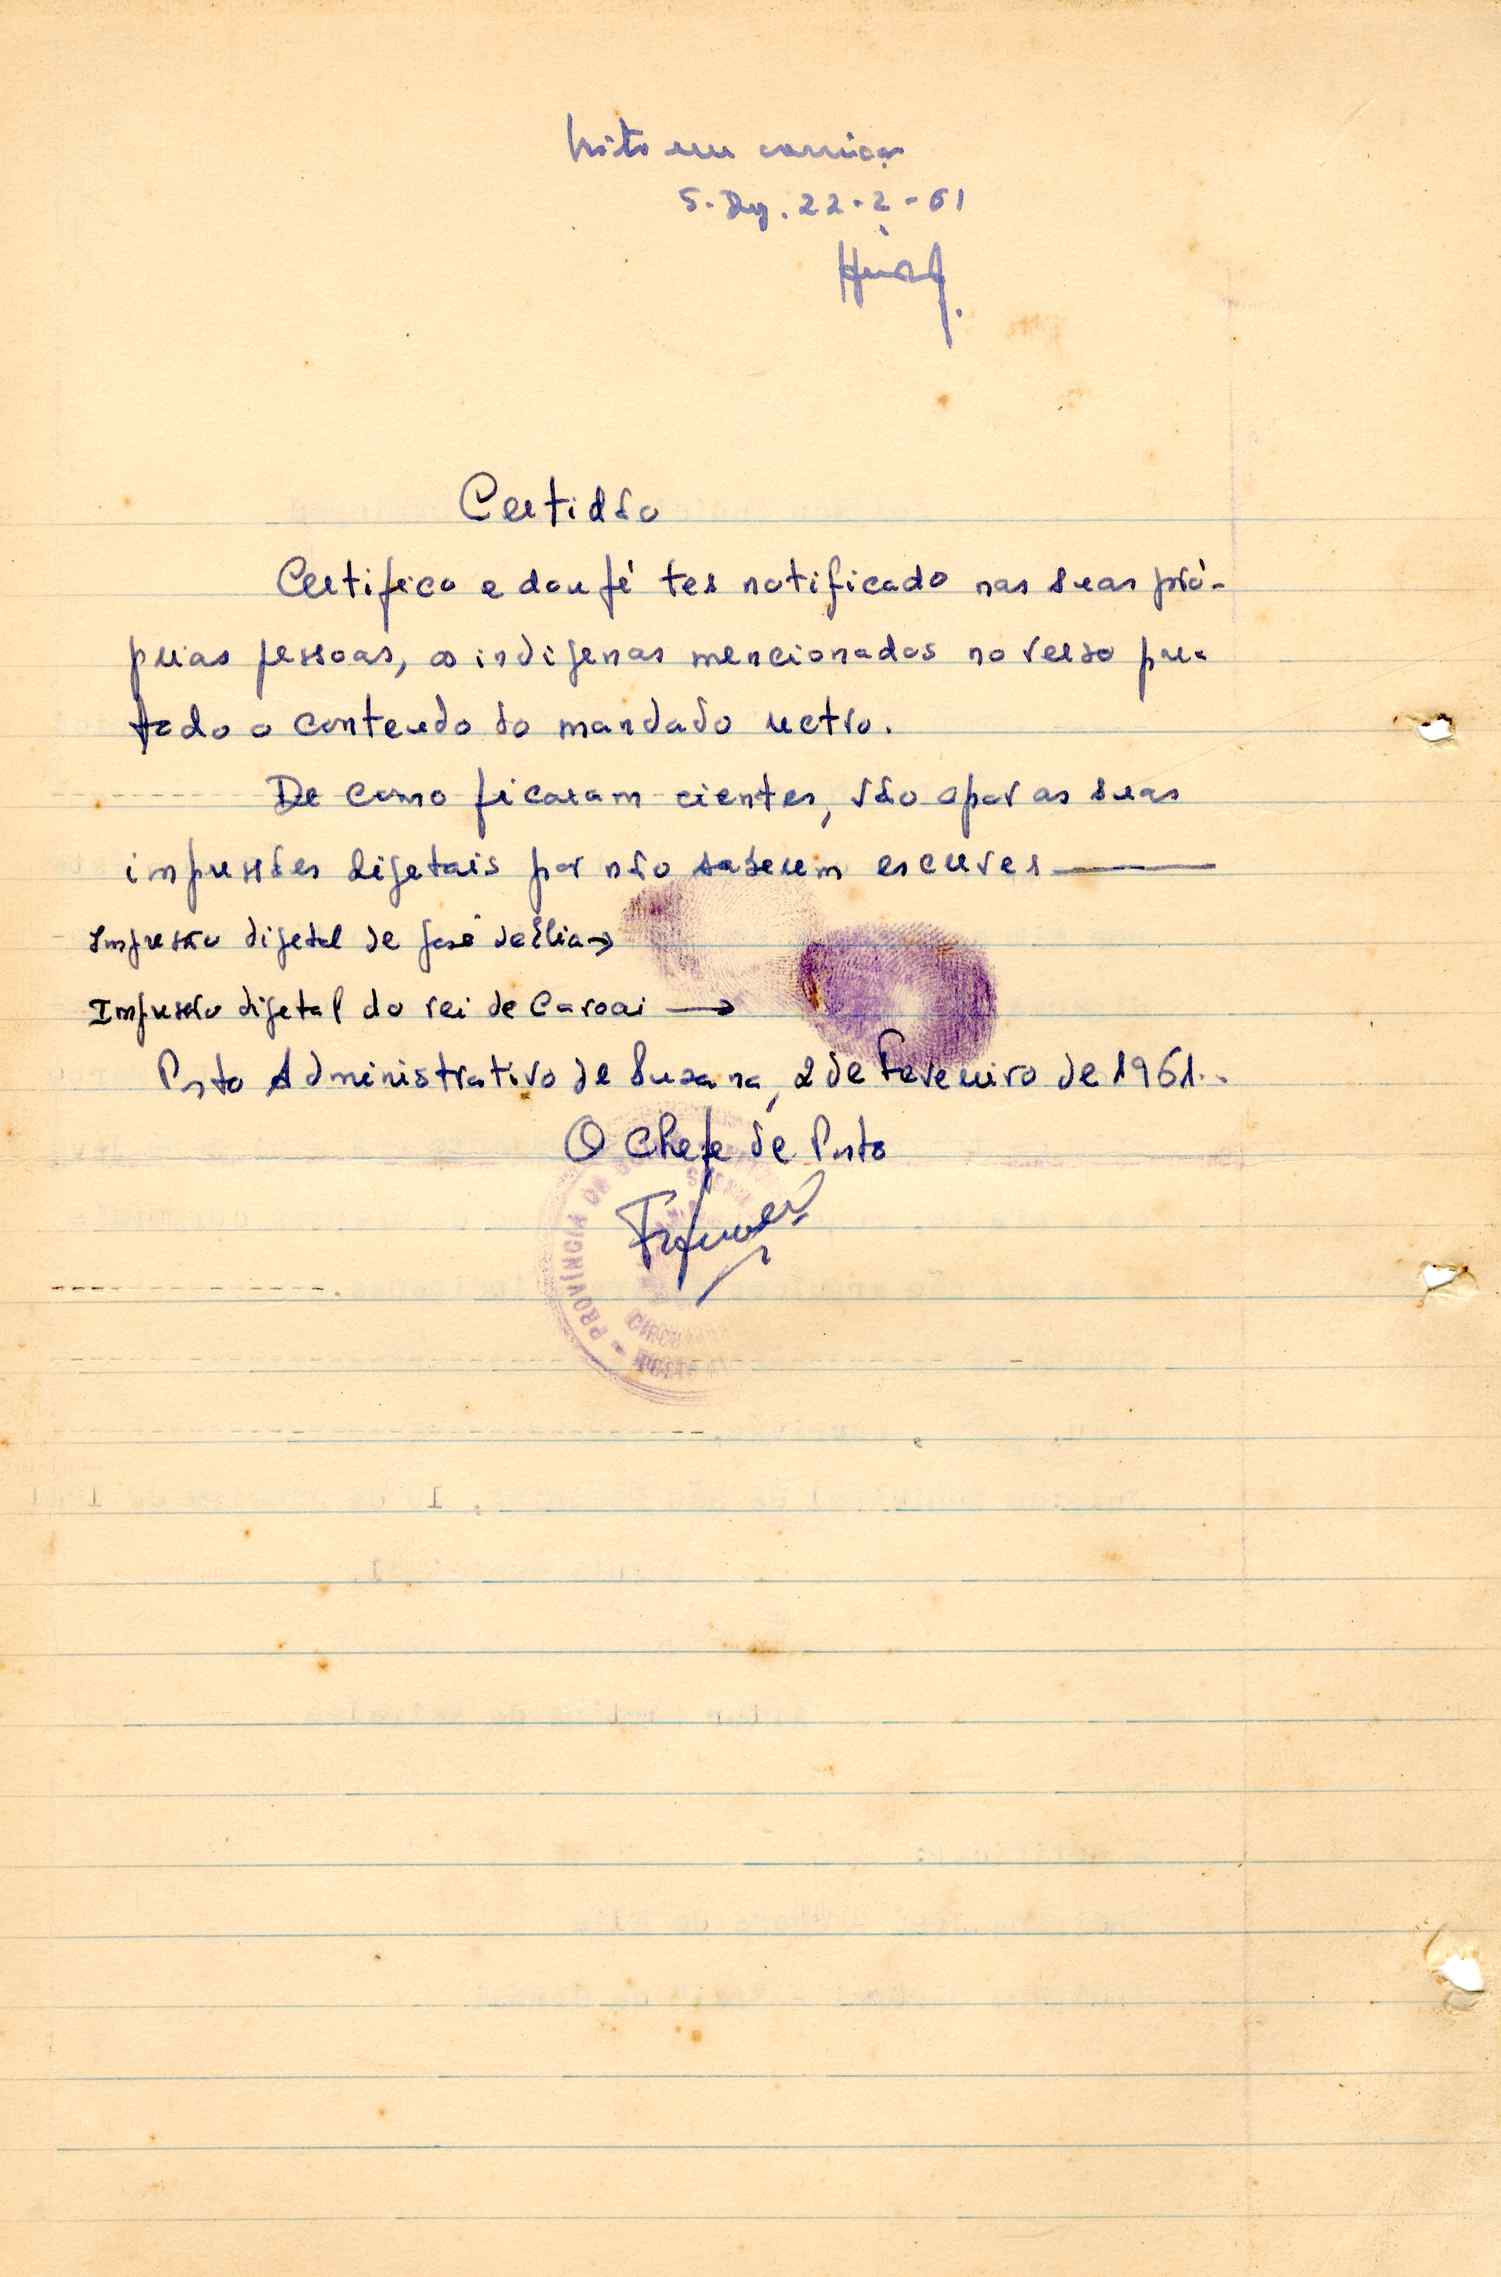 Visto em correição
S. Dgs. 22-2-61
Certidão
Certifico e dou fé ter notificado nas suas pró-
prias pessoas, os indigenas mencionados no verso pre-
tado o conteudo do mandado retro.
De como ficaram cientes, vão apor as suas
impressões digetais por não saberem escrever
Impressão digetal de José de Élia →
Impressão digetal do rei de Caroai →
Posto Administrativo de Suzana, 2 de Fevereiro de 1961..
O Chefe de Posto
PROVÍNCIA DA